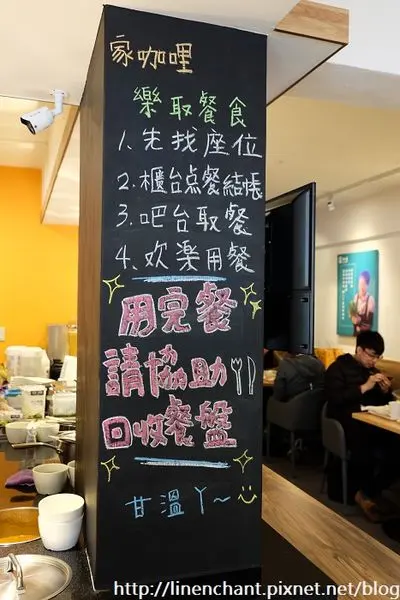 家咖哩
樂取餐食
1、先找座位
2、櫃台点餐結帳
3、吧台取餐
4、欢楽用餐
用完餐
請協助
回收餐盤
甘溫ㄚ~
http://linenchant.pixnet.net/blog